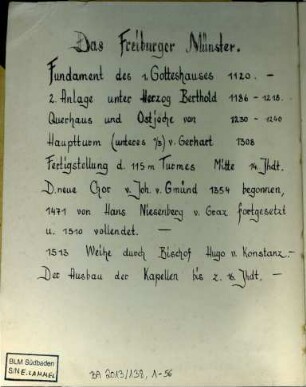 Das Freiburger Münster.
Fundament des 1. Gotteshauses 1120. –
2. Anlage unter Herzog Berthold 1186 – 1218.
Querhaus und Ostjoche von 1230 – 1240
Hauptturm (unteres 1/3) v. Gerhart 1308
Fertigstellung d. 115 m Turmes Mitte 14. Jhdt.
D. neue Chor v. Joh. v. Gmünd 1354 begonnen,
1471 von Hans Niesenberg v. Graz fortgesetzt
u. 1510 vollendet. —
1513 Weihe durch Bischof Hugo v. Konstanz. –
Der Ausbau der Kapellen bis z. 18. Jhdt. –
BLM Südbaden
BA 2013/138, 1-56